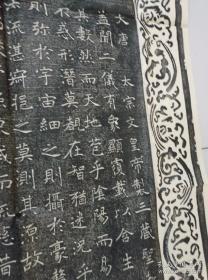 大唐太宗文皇帝製三藏聖
蓋聞二儀有象顯覆載以含生
其數然而天地苞乎陰陽而易
不惑形潛莫覩在智猶迷況乎
則彌於宇宙細之則攝於豪釐
流湛寂挹之莫測其源故
而流慈昔